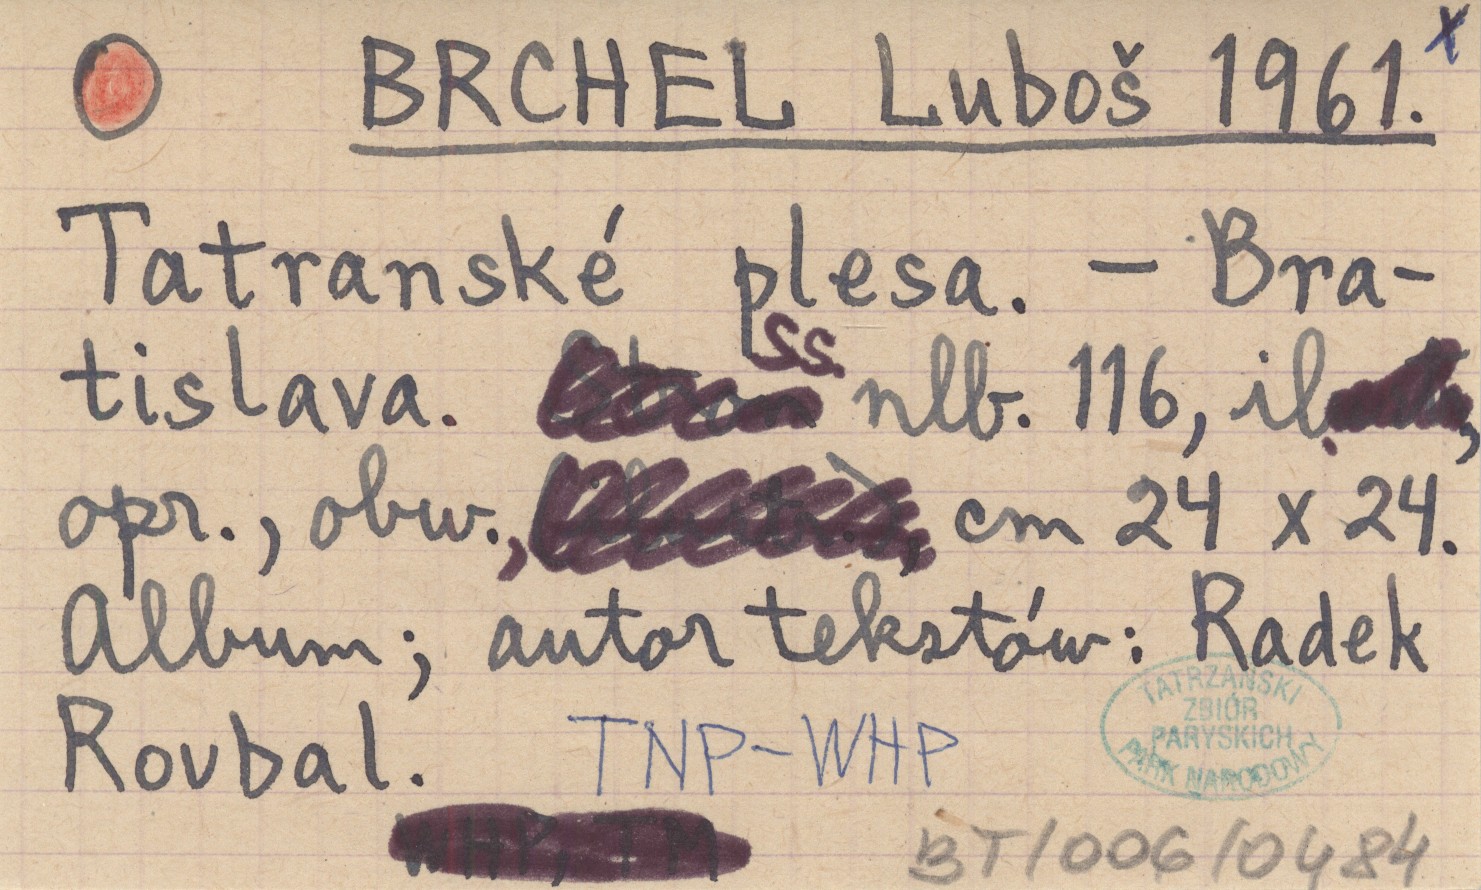 BRCHEL Luboš 1961. x
Tatranské plesa. – Bra-
ss.
tislava. nlb. 116, il.,
opr., obw., cm 24 x 24.
Album; autor tekstów: Radek
Rovbal. TNP-WHP
TATRZAŃSKI
ZBIÓR
PARYSKICH
PARK NARODOWY
WHP, TM
BT/006/0484